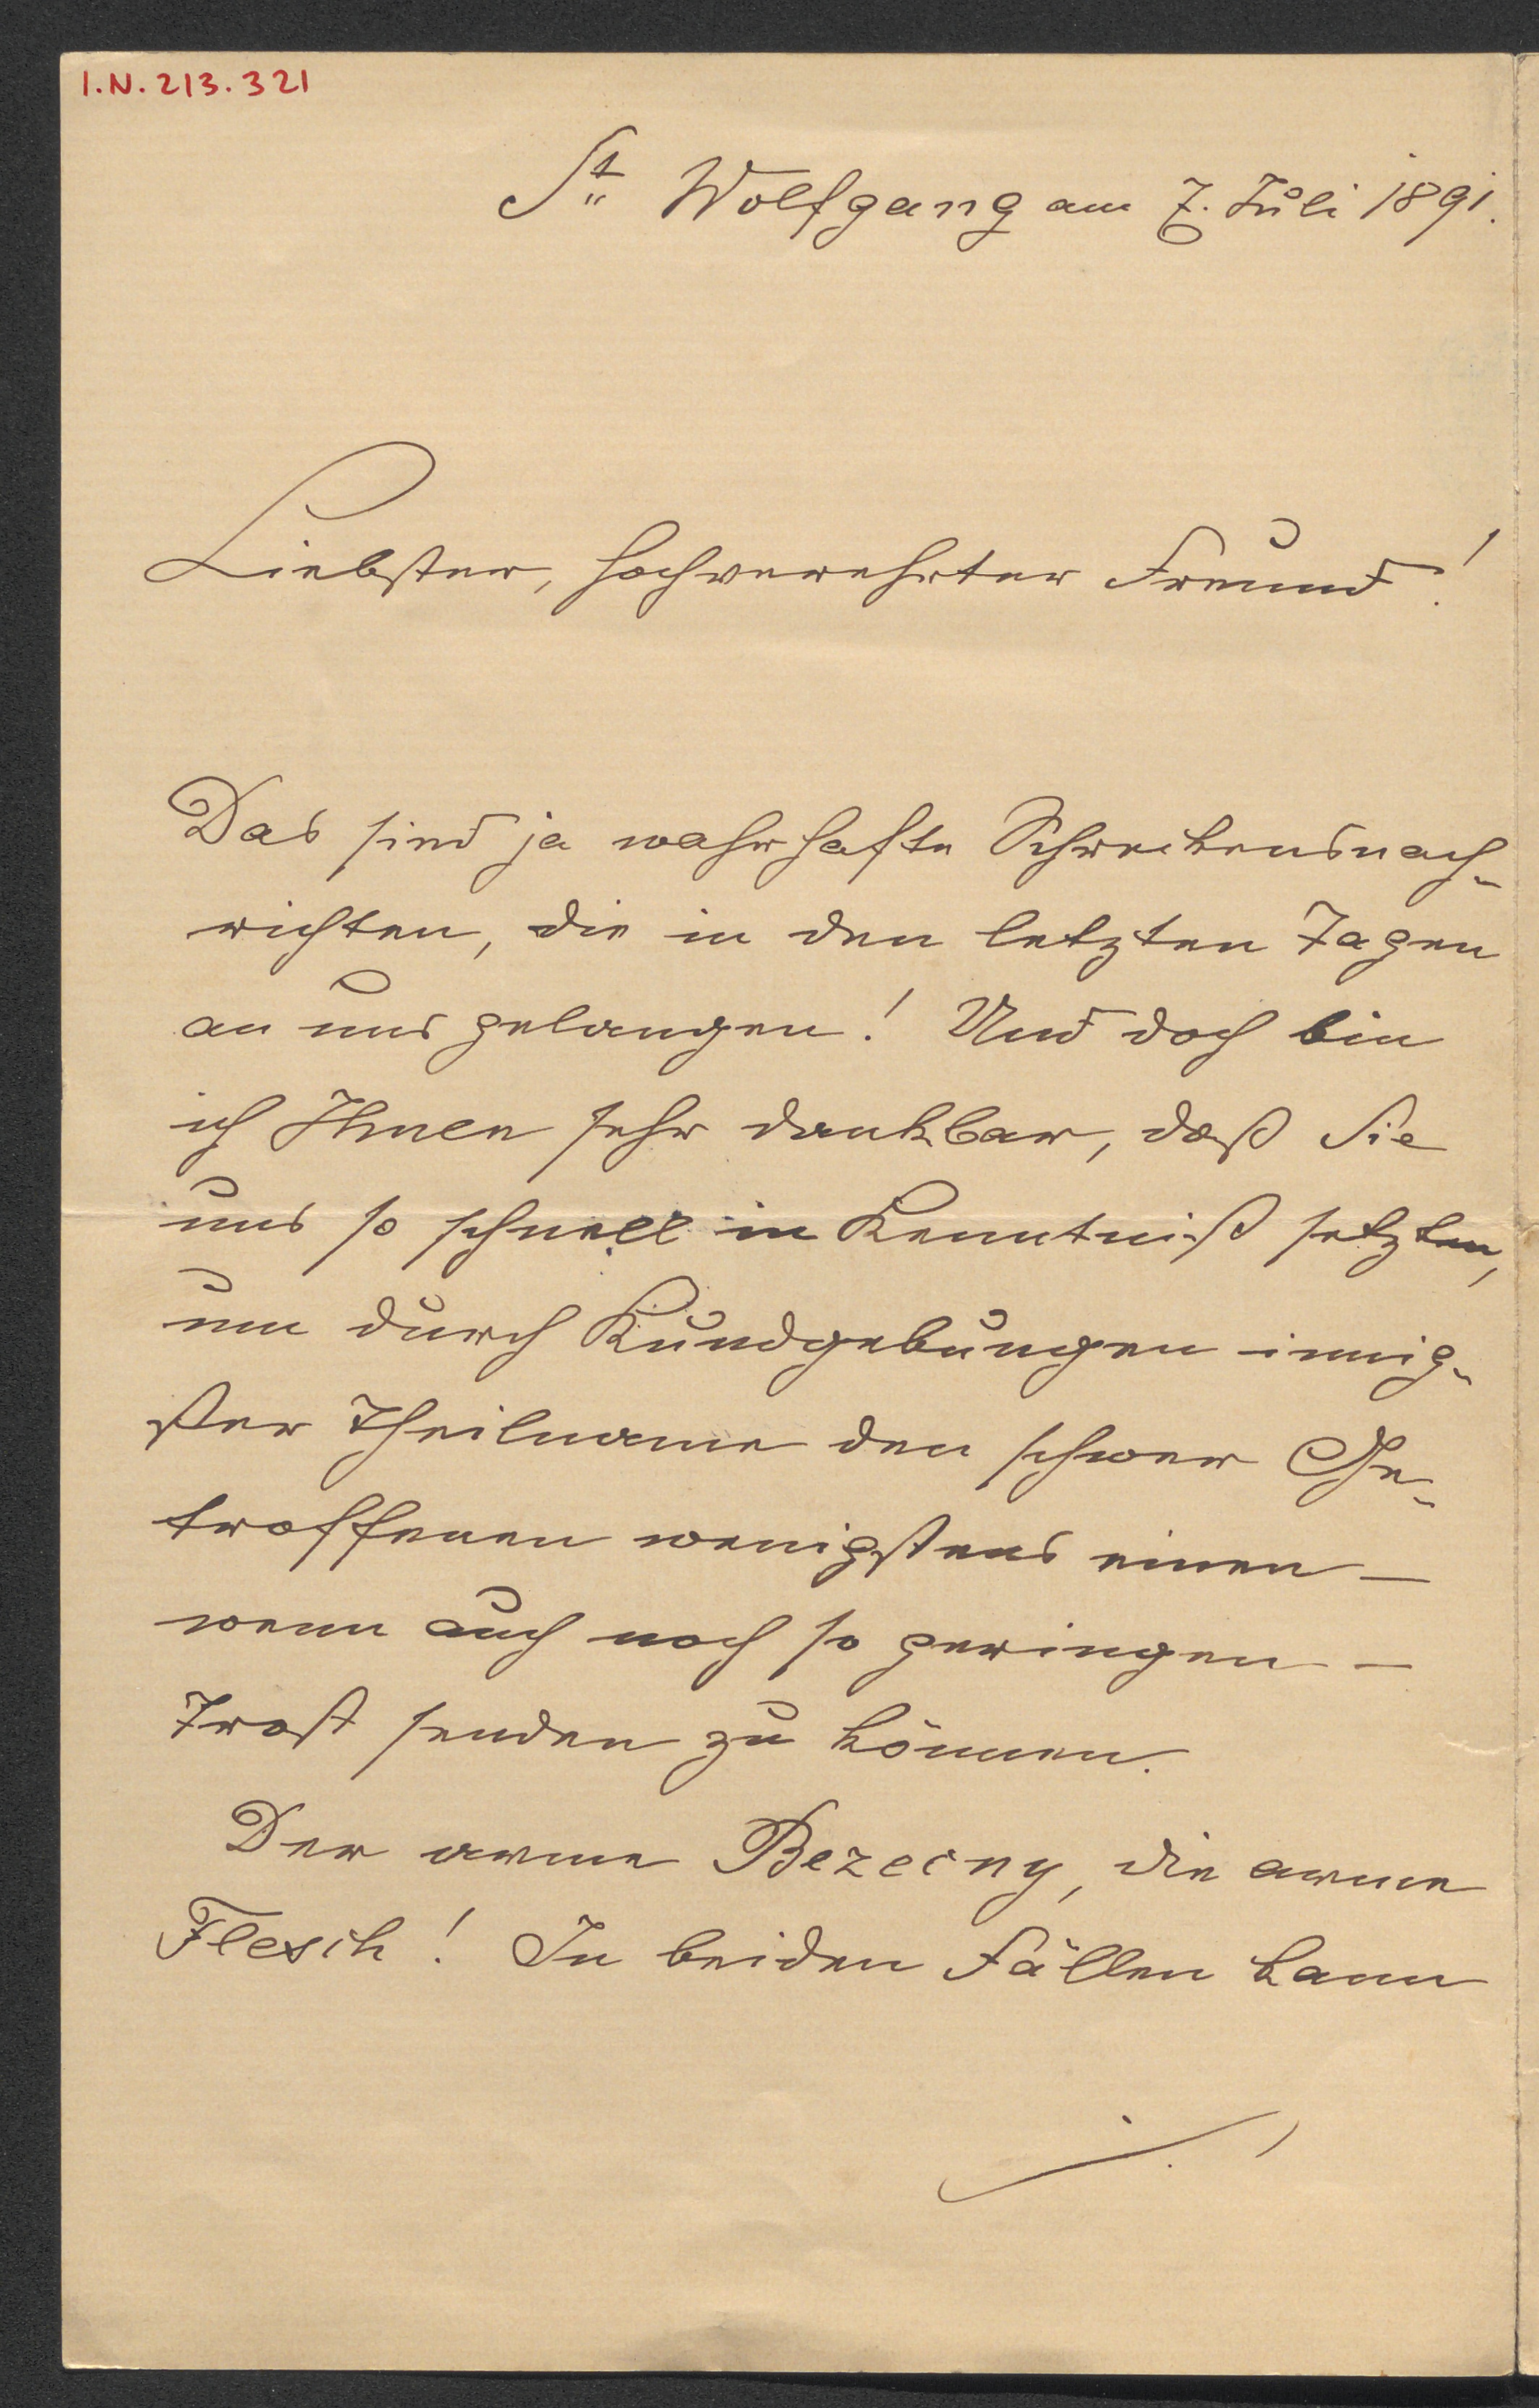 I.N. 213.321
St. Wolfgang am 7. Juli 1891.
Liebster, hochverehrter Freund!
Das sind ja wahrhafte Schreckensnach-
richten, die in den letzten Tagen
an uns gelangen! Und doch bin
ich Ihnen sehr dankbar, daß Sie
uns so schnell in Kenntniß setzten,
um durch Kundgebungen innig-
ster Theilname den schwer Ge-
troffenen wenigstens einen –
wenn auch noch so geringen –
Trost senden zu können.
Der arme Bezecny, die arme
Flesch! In beiden Fällen kann